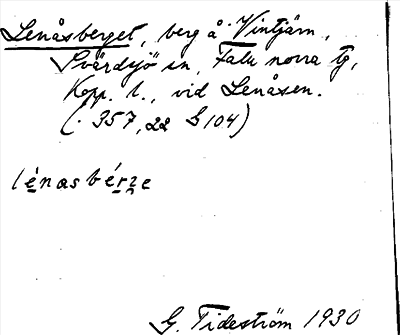 Lenåsberget, berg å Vintjärn,
Svärdsjö sn, Falu norra tg,
Kopp. l., vid Lenåsen.
(. 357, 22 S 104)
lénasbérze
G. Tideström 1930